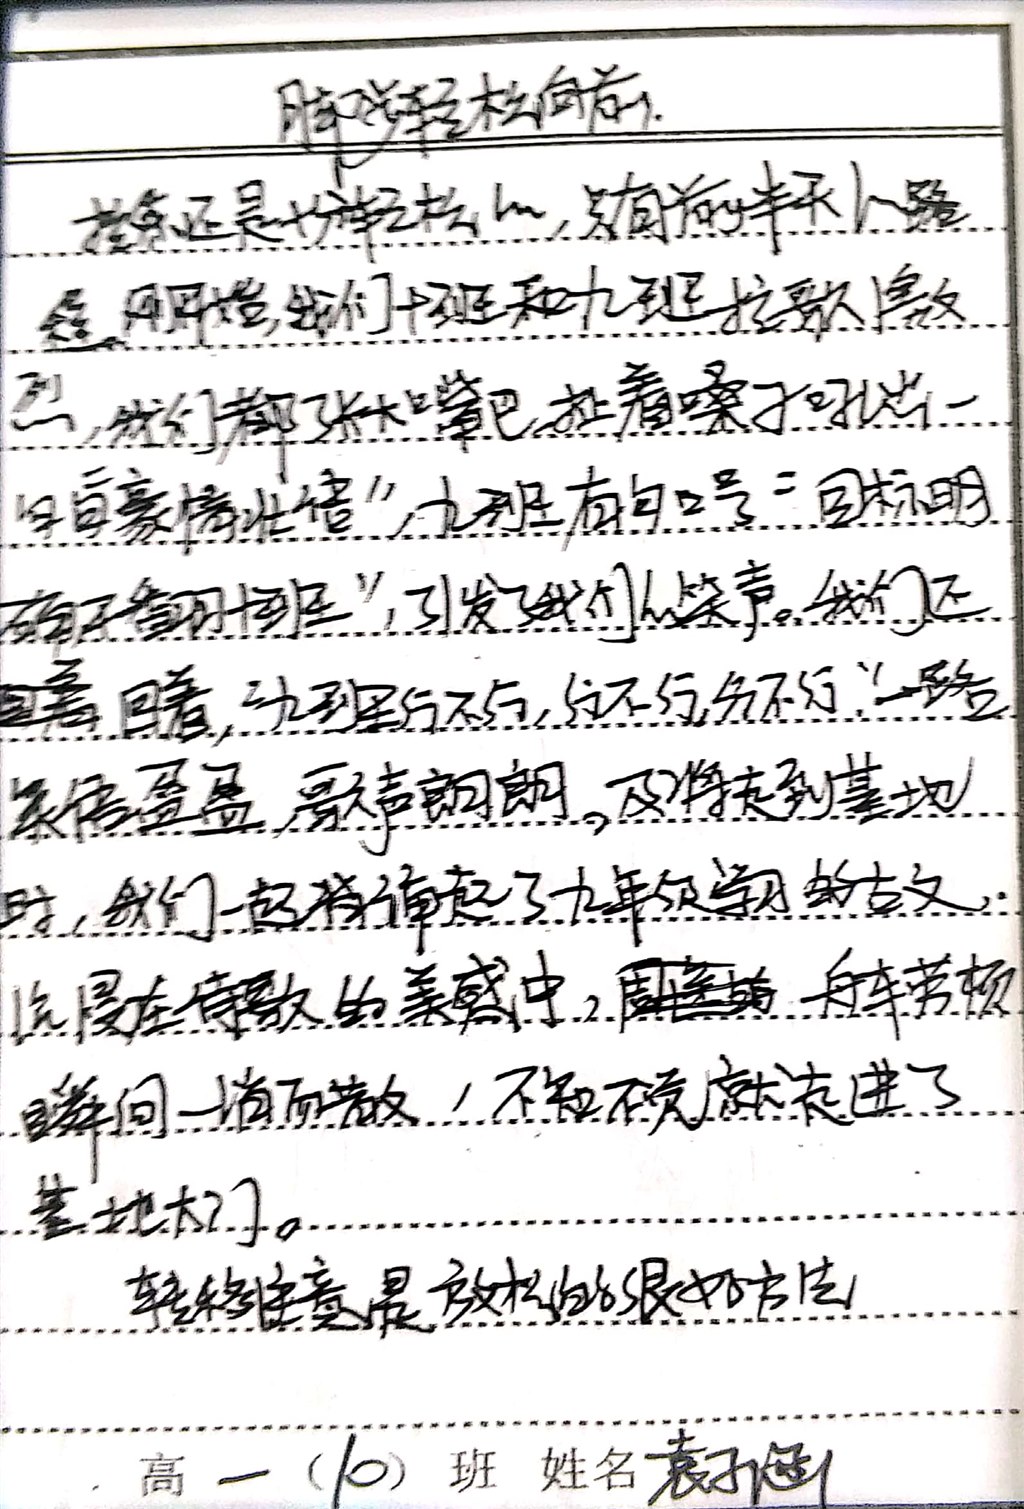 脚步轻松向前.
拉练还是十分轻松的,只有前半天的路
我们十班和九班拉歌激
烈,我们都张大嘴巴,扯着嗓子吼出一
句句豪情壮语”,九班有句口号“目标明
确 十班”,引发了我们的笑声。我们还
回着,“九班行不行,行不行,行不行”一路
笑语盈盈,歌声朗朗。及将走到基地
时,我们一起背诵起了九年级学习的古文,
沉浸在诗歌的美感中, 舟车劳顿
瞬间一消而散,不知不觉就走进了
基地大门。
转移注意是放松的很好方法
高一(10)班 姓名袁子涵